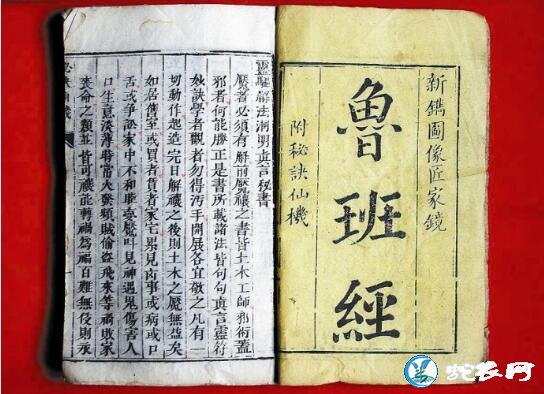 新鐫圖像匠家鏡
魯班經
附秘訣仙機
靈驅解法洞明真言秘書
魘者必須有解前魘禳之書皆土木工師邪術蓋
邪者何能勝正是書所載諸法皆句句真言靈符
妙訣學者觀者勿得汚手開展各宜敬之凡有
切動作起造完日解禳之後則土木之魘無益矣
如居舊室或買者賃者家宅累見凶事或病或口
舌或爭訟家中不和魘叫見神遇鬼傷人
口生意淡薄時常人賊偷盜飛來等禍敗
喪命之類並皆可禳能轉禍為福百難無侵則承
蛇农网